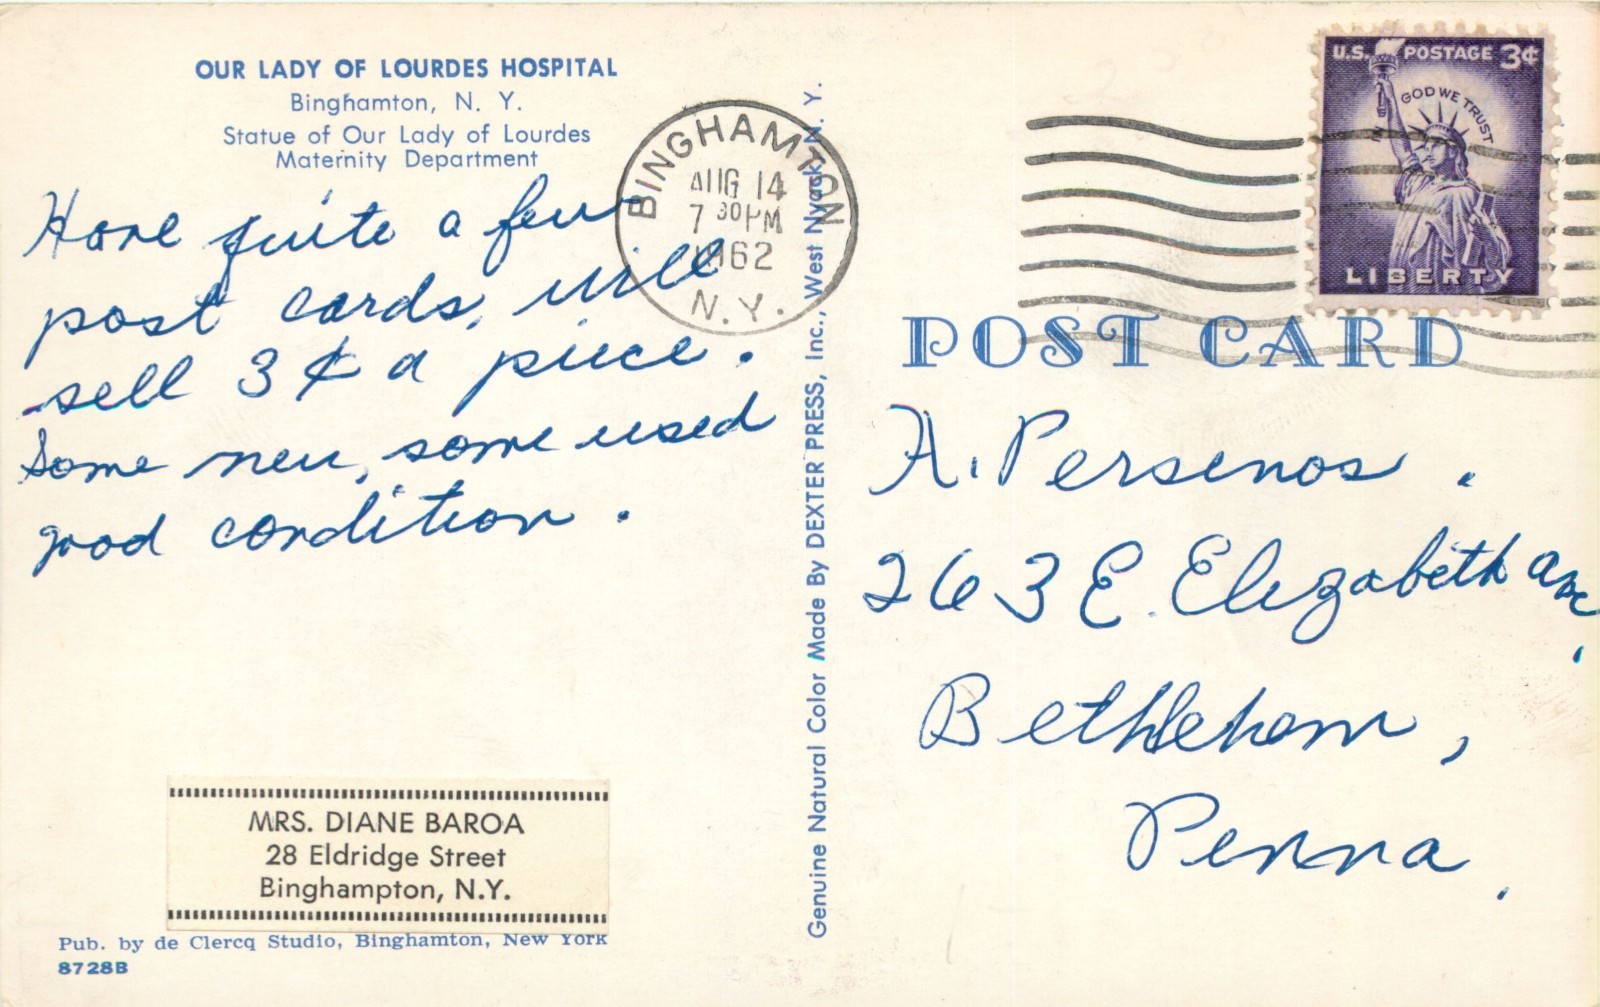 OUR LADY OF LOURDES HOSPITAL
Binghamton, N. Y.
Statue of Our Lady of Lourdes
Maternity Department
Have quite a few
post cards, will
sell 3¢ a piece.
Some new, some used
good condition.
MRS. DIANE BAROA
28 Eldridge Street
Binghampton, N.Y.
Pub. by de Clercq Studio, Binghamton, New York
8728B
BINGHAMTON
AUG 14
7 30PM
1962
N.Y.
Genuine Natural Color Made By DEXTER PRESS, Inc., West Nyack, N. Y.
U.S. POSTAGE 3¢
IN GOD WE TRUST
LIBERTY
POST CARD
A. Persenos.
263 E. Elizabeth Ave,
Bethlehem,
Penna.